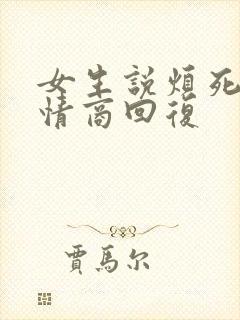 女生説煩死
情商回復
賈馬尔